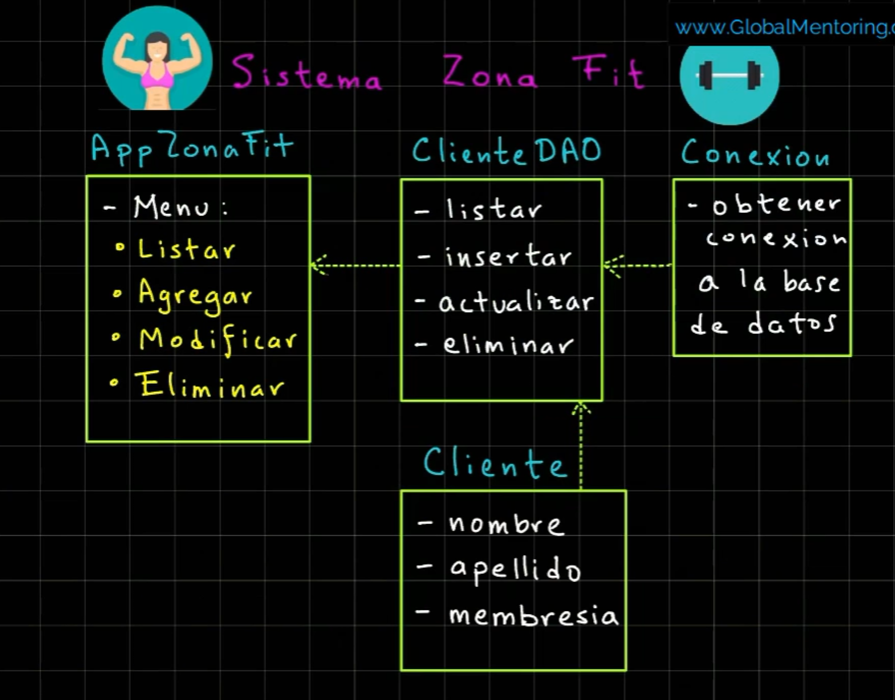 www.GlobalMentoring.c
Sistema Zona Fit
AppZonaFit
- Menu:
• Listar
• Agregar
• Modificar
• Eliminar
ClienteDAO
- listar
- insertar
- actualizar
- eliminar
Conexion
- obtener
conexion
a la base
de datos
Cliente
- nombre
- apellido
- membresia